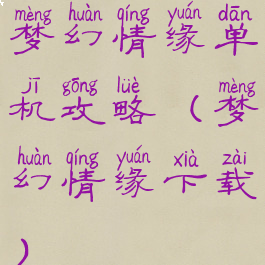 mèng huàn qíng yuán dān
梦幻情缘单
jī gōng lüè mèng
机攻略（梦
huàn qíng yuán xià zài
幻情缘下载
）